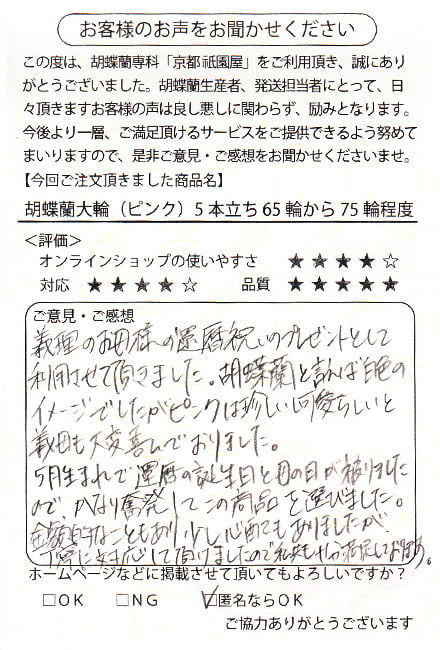 お客様のお声をお聞かせください
この度は、胡蝶蘭専科「京都祇園屋」をご利用頂き、誠にあり
がとうございました。胡蝶蘭生産者、発送担当者にとって、日
々頂きますお客様の声は良し悪しに関わらず、励みとなります。
今後より一層、ご満足頂けるサービスをご提供できるよう努めて
まいりますので、是非ご意見・ご感想をお聞かせくださいませ。
【今回ご注文頂きました商品名】
胡蝶蘭大輪（ピンク）5本立ち65輪から75輪程度
＜評価＞
オンラインショップの使いやすさ ★★★★☆
対応 ★★★★☆ 品質 ★★★★★
ご意見・ご感想
義理のお母様への還暦祝いのプレゼントとして
利用させて頂きました。胡蝶蘭と言えば白色の
イメージでしたがピンクは珍しい
義母も大変喜んでおりました。
5月生まれで還暦の誕生日と母の日が被りました
ので、かなり奮発してこの商品を選びました。
金額的なこともあり少し心配でもありましたが、
丁寧に対応して頂けましたので
ホームページなどに掲載させて頂いてもよろしいですか？
□OK □NG ☑匿名ならOK
ご協力ありがとうございます